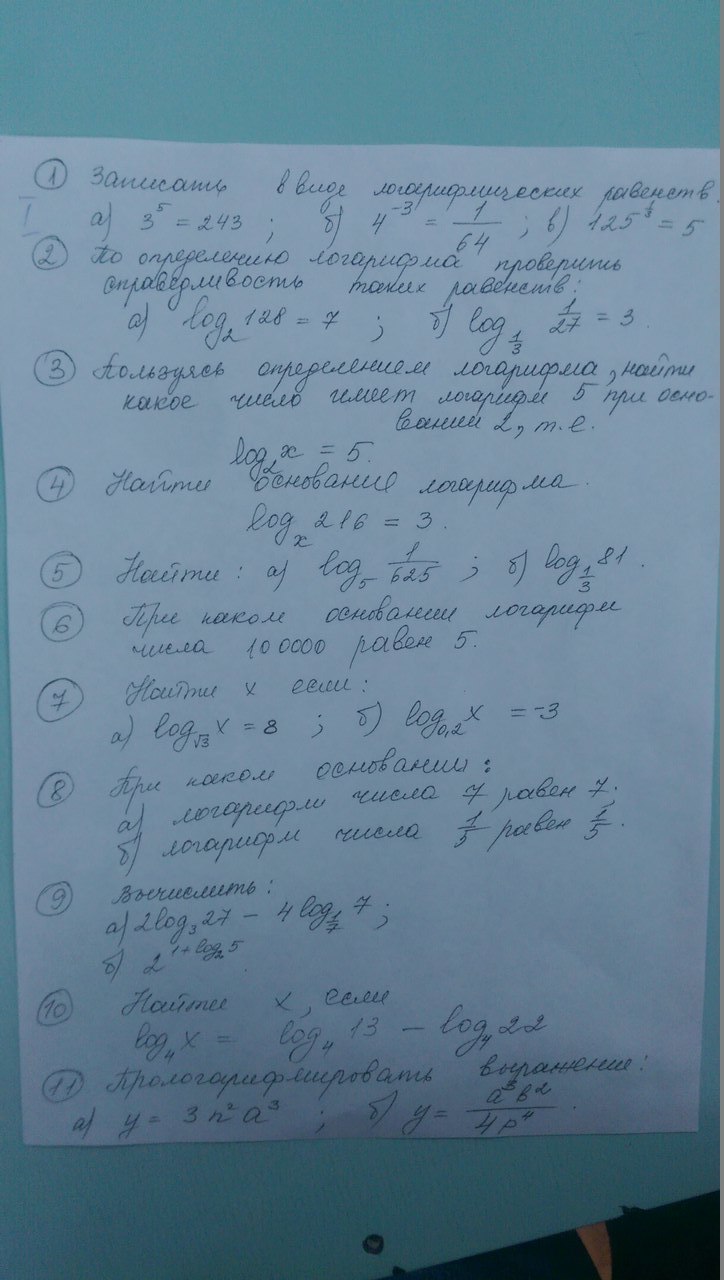 ① Записать в виде логарифмических равенств.
I а) 3⁵ = 243 ; б) 4⁻³ = 1/64 ; в) 125^(1/3) = 5
② По определению логарифма проверить
справедливость таких равенств:
а) log₂ 128 = 7 ; б) log_(1/3) 1/27 = 3.
③ Пользуясь определением логарифма, найти
какое число имеет логарифм 5 при осно-
вании 2, т.е.
log₂x = 5.
④ Найти основание логарифма.
log_x 216 = 3.
⑤ Найти: а) log₅ 1/625 ; б) log_(1/3) 81.
⑥ При каком основании логарифм
числа 10 0000 равен 5.
⑦ Найти x если:
а) log_(√3) x = 8 ; б) log_(0,2) x = -3
⑧ При каком основании:
а) логарифм числа 7 равен 7;
б) логарифм числа 1/5 равен 1/5.
⑨ Вычислить:
а) 2log₃27 - 4log_(1/7) 7;
б) 2^(1+log₂5).
⑩ Найти x, если
log₄x = log₄ 13 - log₄ 22
⑪ Прологарифмировать выражение:
а) y = 3n²a³ ; б) y = a³b²/4p⁴.